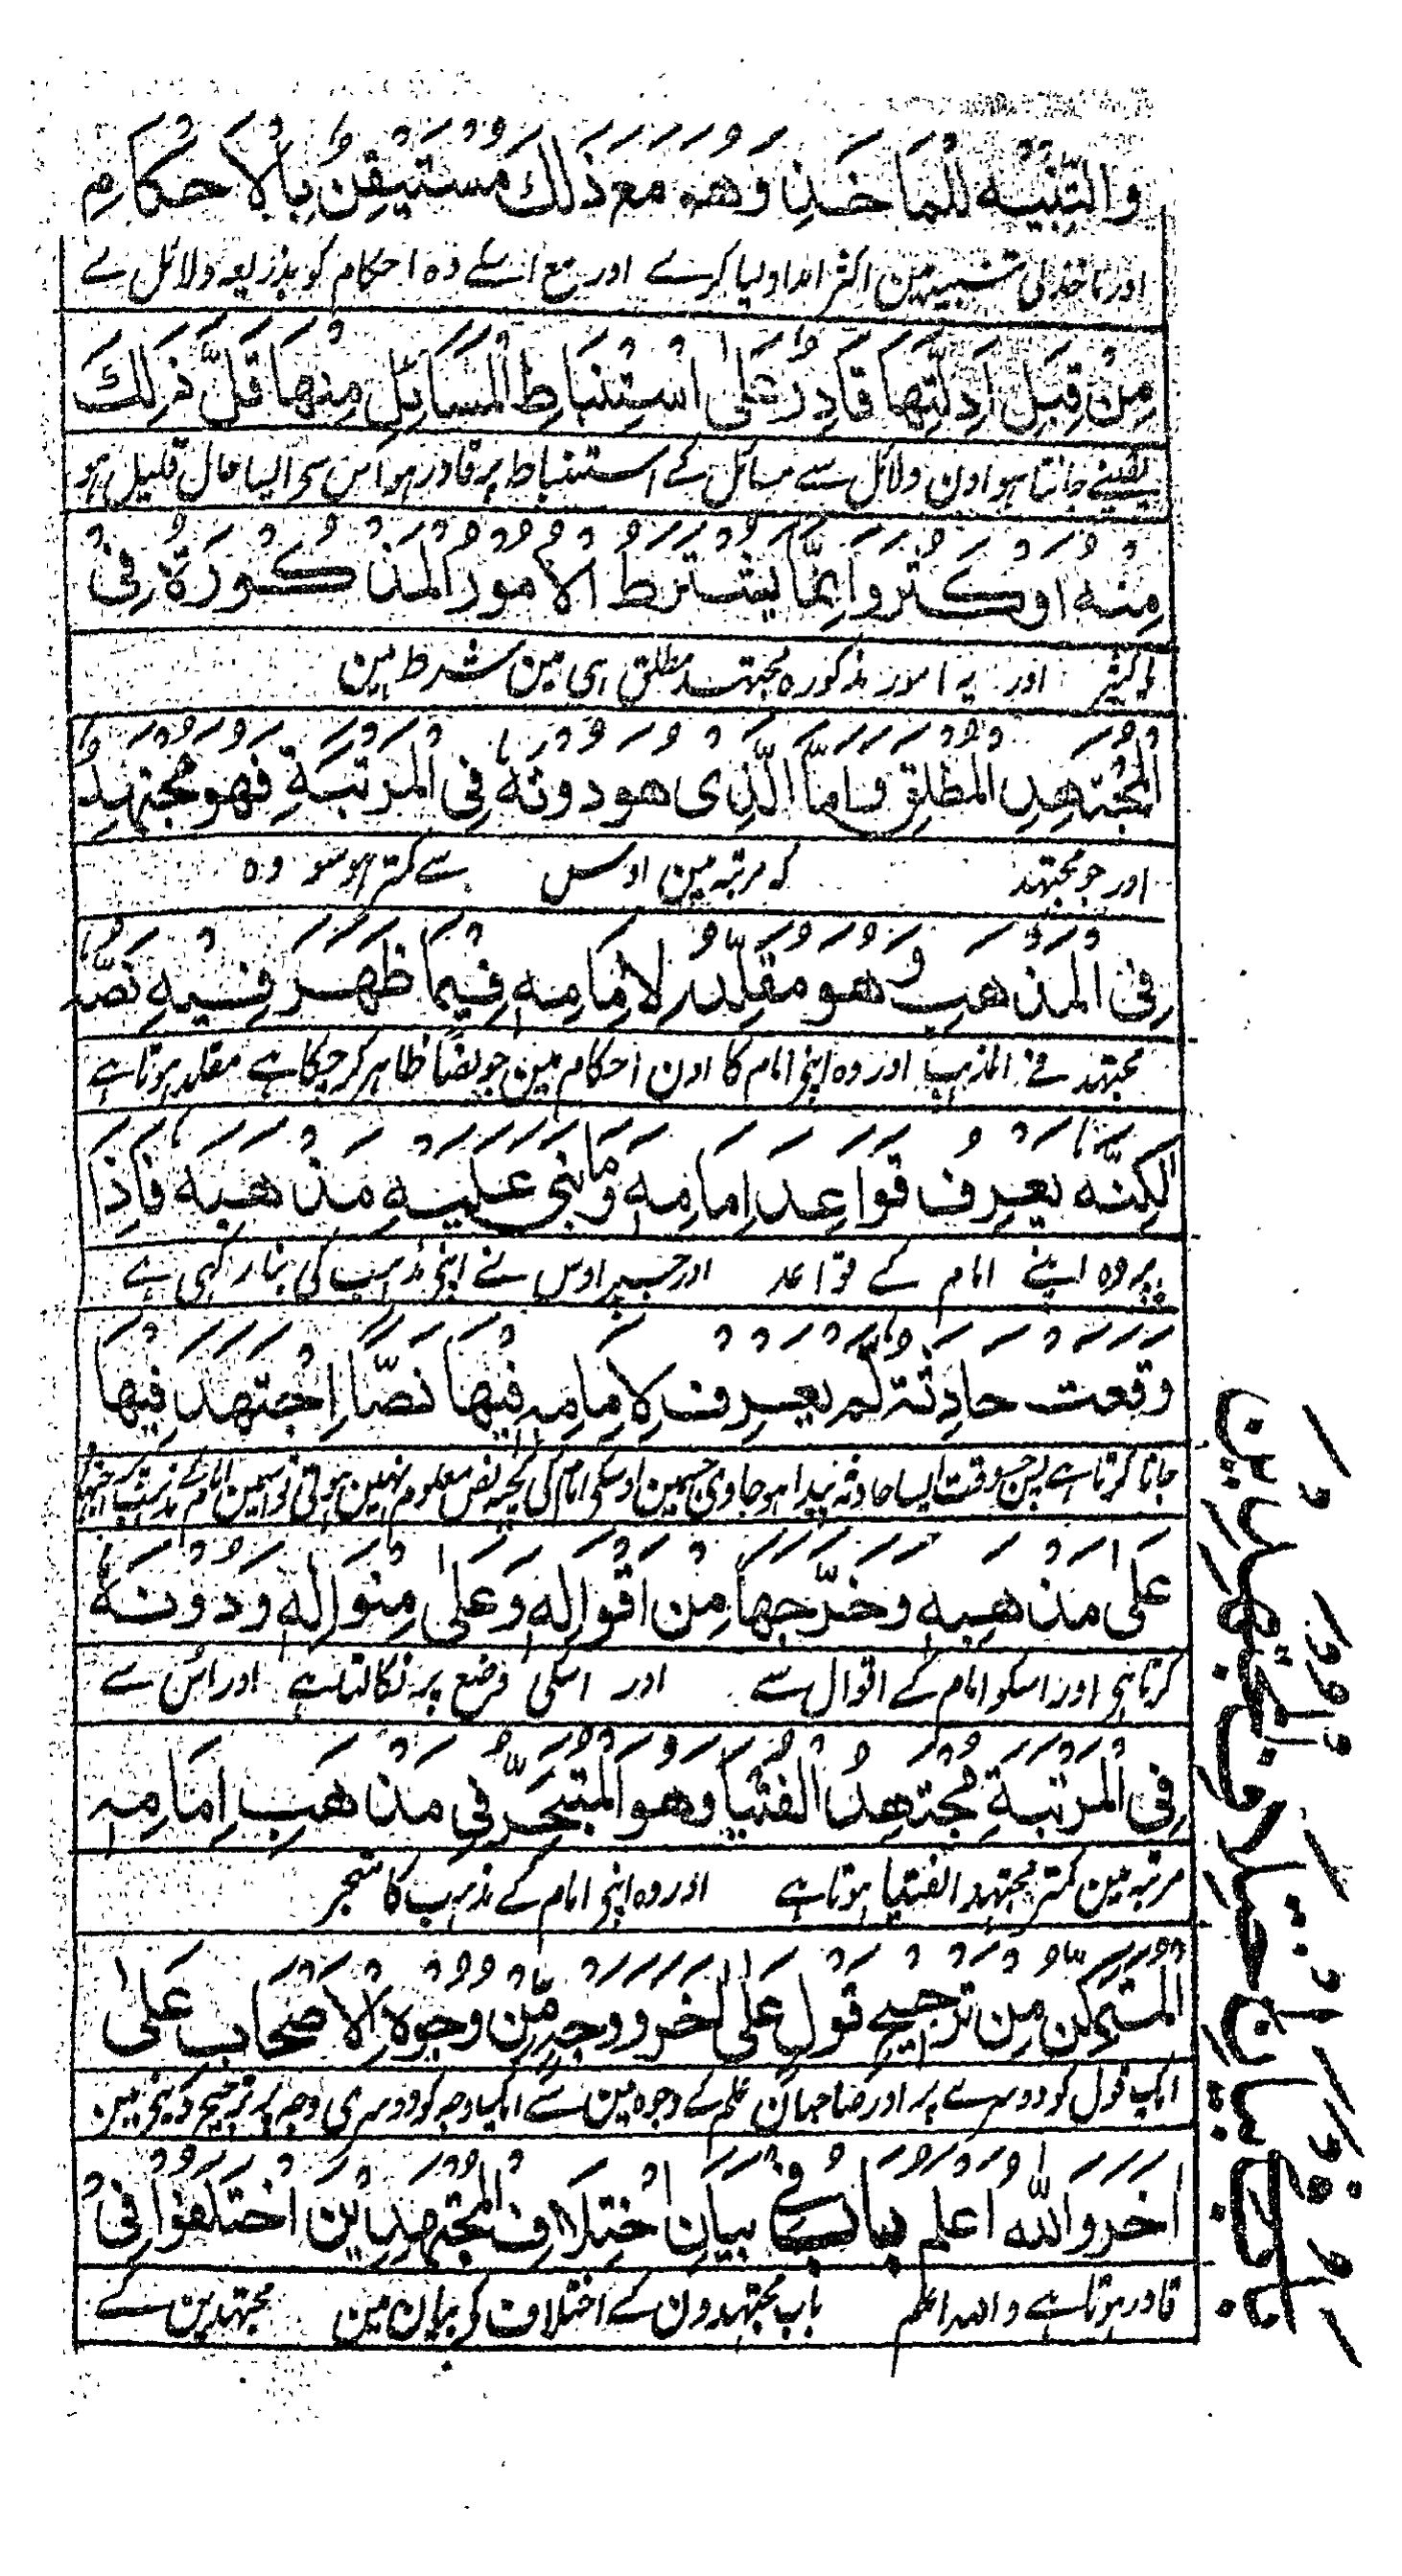 والتَّنْبِيْهِ لِلْمَاخَذِ وَهُوَ مَعَ ذٰلِكَ مُسْتَيْقِنٌ بِالْاَحْكَامِ
اور ماخذ کی تنبیہ مین اکثر امداد لیا کرے اور مع اسکے وہ احکام کو بذریعہ دلائل کے
مِنْ قِبَلِ اَدِلَّتِهَا قَادِرٌ عَلٰى اسْتِنْبَاطِ الْمَسَائِلِ مِنْهَا قَلَّ ذٰلِكَ
یقینے جانتا ہو اون دلائل سے مسائل کے استنباط پر قادر ہو اس سے ایسا حال قلیل ہو
مِنْهُ اَوْ كَثُرَ وَاِنَّمَا يُشْتَرَطُ الْاُمُوْرُ الْمَذْكُوْرَةُ فِىْ
یا کثیر اور یہ امور مذکورہ مجتہد مطلق ہی مین شرط ہین
الْمُجْتَهِدِ الْمُطْلَقِ وَاَمَّا الَّذِىْ هُوَ دُوْنَهٗ فِى الْمَرْتَبَةِ فَهُوَ مُجْتَهِدٌ
اور جو مجتہد کہ مرتبہ مین اوس سے کمتر ہو سو وہ
فِى الْمَذْهَبِ وَهُوَ مُقَلِّدٌ لِاِمَامِهٖ فِيْمَا ظَهَرَ فِيْهِ نَصُّهٗ
مجتہد فے المذہب اور وہ اپنی امام کا اون احکام مین جو نصًا ظاہر کر چکا ہے مقلد ہوتا ہے
لٰكِنَّهٗ يَعْرِفُ قَوَاعِدَ اِمَامِهٖ وَمَا بَنٰى عَلَيْهِ مَذْهَبَهٗ فَاِذَا
پر وہ اپنے امام کے قواعد اور جسپر اوس نے اپنی مذہب کی بنا رکہی ہے
وَقَعَتْ حَادِثَةٌ لَمْ يَعْرِفْ لِاِمَامِهٖ فِيْهَا نَصًّا اِجْتَهَدَ فِيْهَا
جانا کرتا ہے پس جسوقت ایسا حادثہ پیدا ہو جاوی جسمین اوسکی امام کی کچہہ نص معلوم نہین ہوتی تو اسمین امام کے مذہب پر اجتہاد
عَلٰى مَذْهَبِهٖ وَخَرَّجَهَا مِنْ اَقْوَالِهٖ وَعَلٰى مِنْوَالِهٖ وَدُوْنَهٗ
کرتا ہی اور اسکو امام کے اقوال سے اور اسکی وضع پر نکالتا ہے اور اس سے
فِى الْمَرْتَبَةِ مُجْتَهِدُ الْفُتْيَا وَهُوَ الْمُتَبَحِّرُ فِى مَذْهَبِ اِمَامِهٖ
مرتبہ مین کمتر مجتہد الفتیا ہوتا ہے اور وہ اپنی امام کے مذہب کا متبحر
الْمُتَمَكِّنُ مِنْ تَرْجِيْحِ قَوْلٍ عَلٰى اٰخَرَ وَوَجْهٍ مِّنْ وُجُوْهِ الْاَصْحَابِ عَلٰى
ایک قول کو دوسرے پر اور صاحبان علم کے وجوہ مین سے ایک وجہ کو دوسری وجہ پر ترجیح دینے مین
اٰخَرَ وَاللّٰهُ اَعْلَمُ بَابٌ فِىْ بَيَانِ اخْتِلَافِ الْمُجْتَهِدِيْنَ اخْتَلَفُوْا فِىْ
قادر ہوتا ہے واللہ اعلم باب مجتہدون کے اختلاف کی بیان مین مجتہدین کے
باب بیان اختلاف المجتہدین